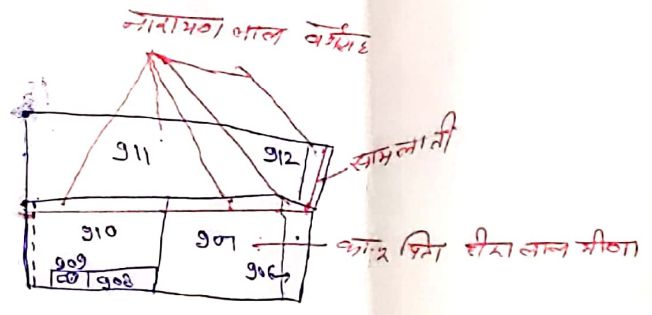 नारायण लाल वगैराह
911
912
सामलाती
910
907
909
908
906
पिता हीरा लाल मीणा